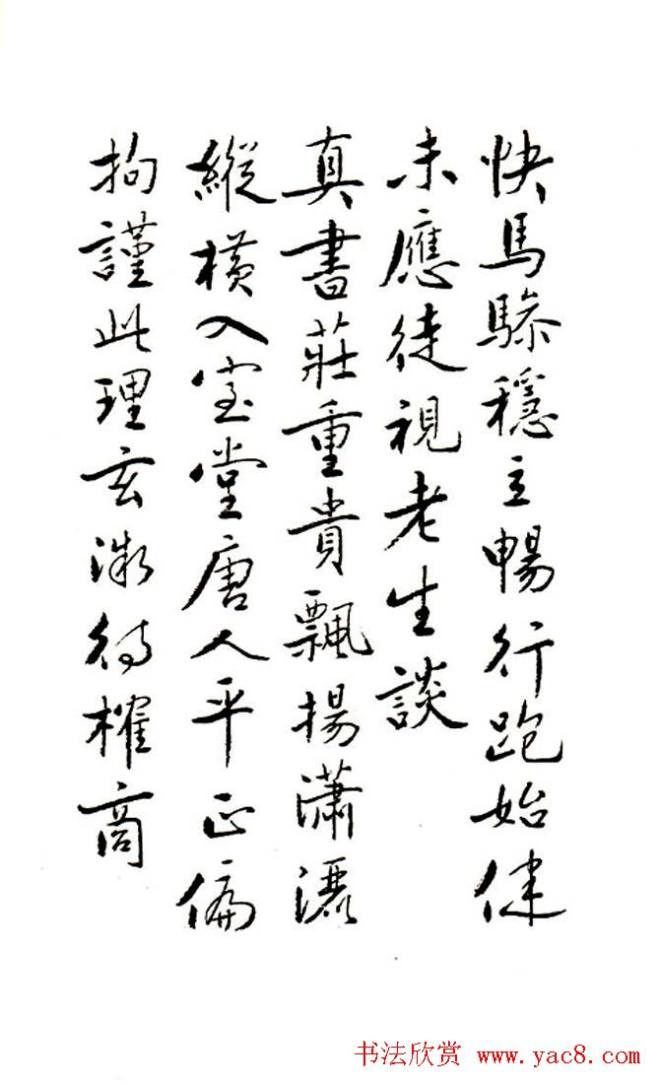 快馬驂穩立暢行跑始健
未應徒視老生談
真書莊重貴飄揚瀟灑
縱橫入室堂唐人平正偏
拘謹此理玄微待榷商
书法欣赏 www.yac8.com